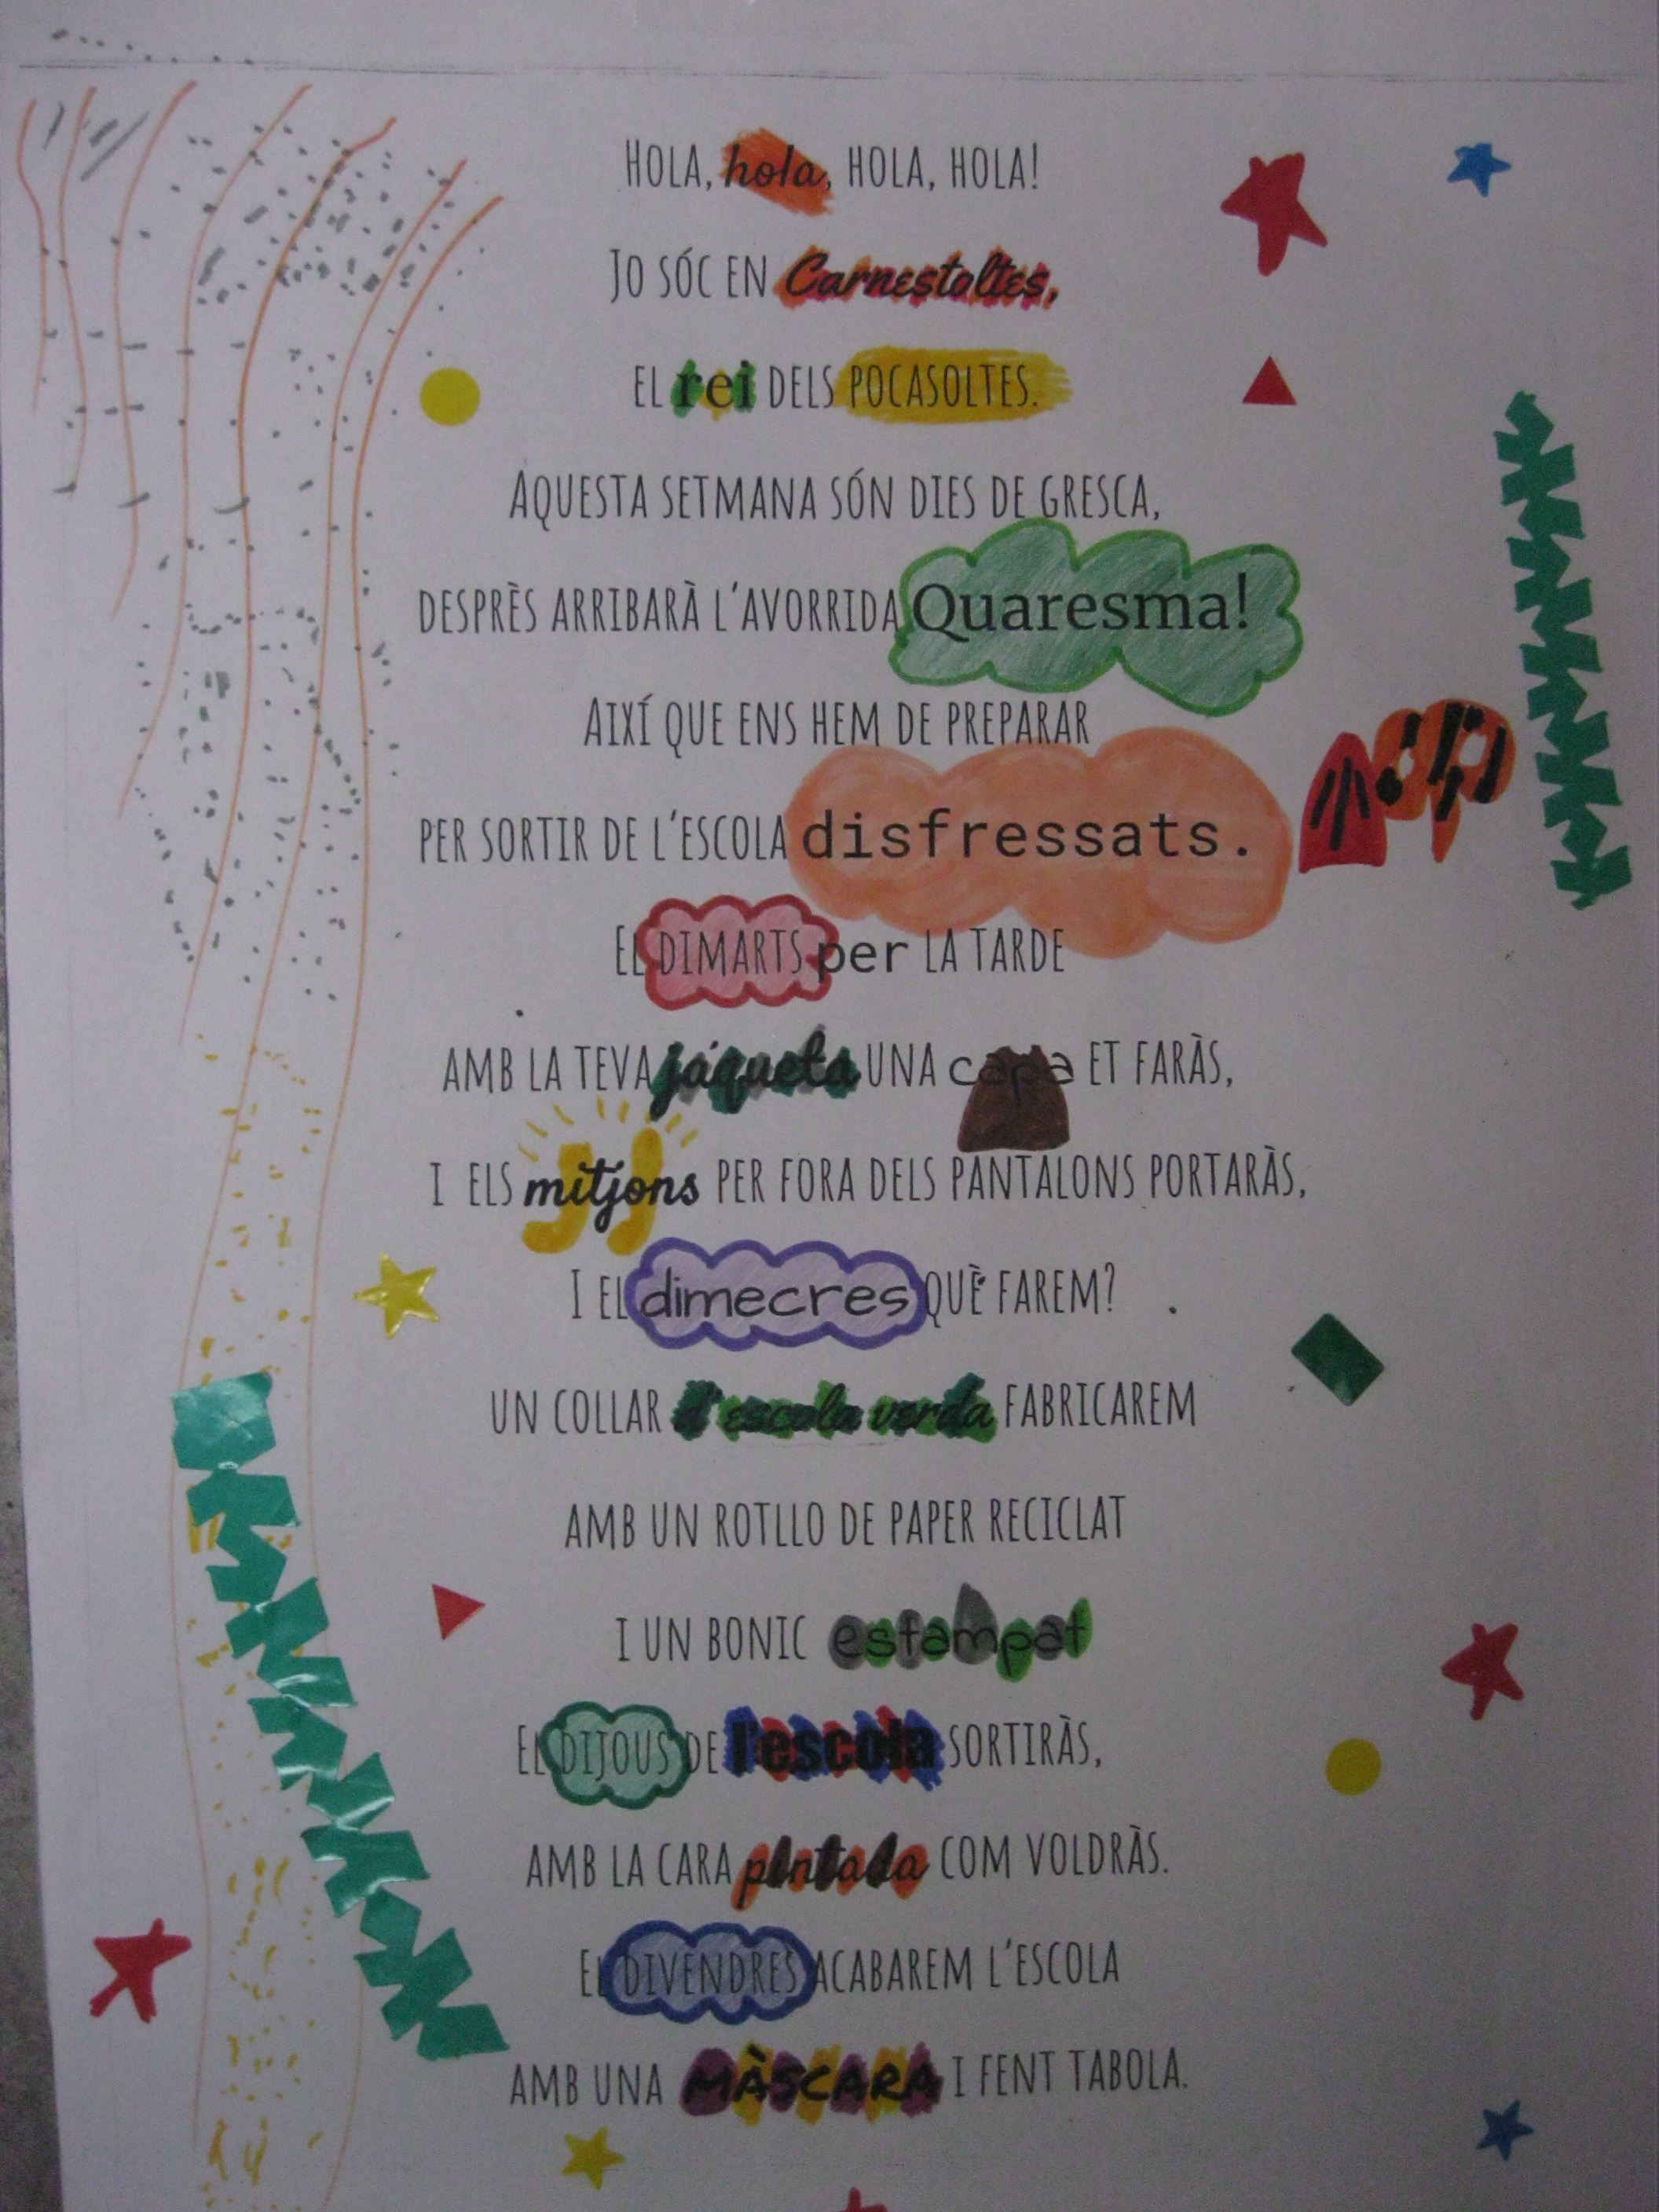 Hola, hola, hola, hola!
Jo sóc en Carnestoltes,
el rei dels pocasoltes.
Aquesta setmana són dies de gresca,
desprès arribarà l'avorrida Quaresma!
Així que ens hem de preparar
per sortir de l'escola disfressats.
El dimarts per la tarde
amb la teva jaqueta una capa et faràs,
i els mitjons per fora dels pantalons portaràs,
I el dimecres què farem?
un collar d'escola verda fabricarem
amb un rotllo de paper reciclat
i un bonic estampat
El dijous de l'escola sortiràs,
amb la cara pintada com voldràs.
El divendres acabarem l'escola
amb una MÀSCARA i fent tabola.